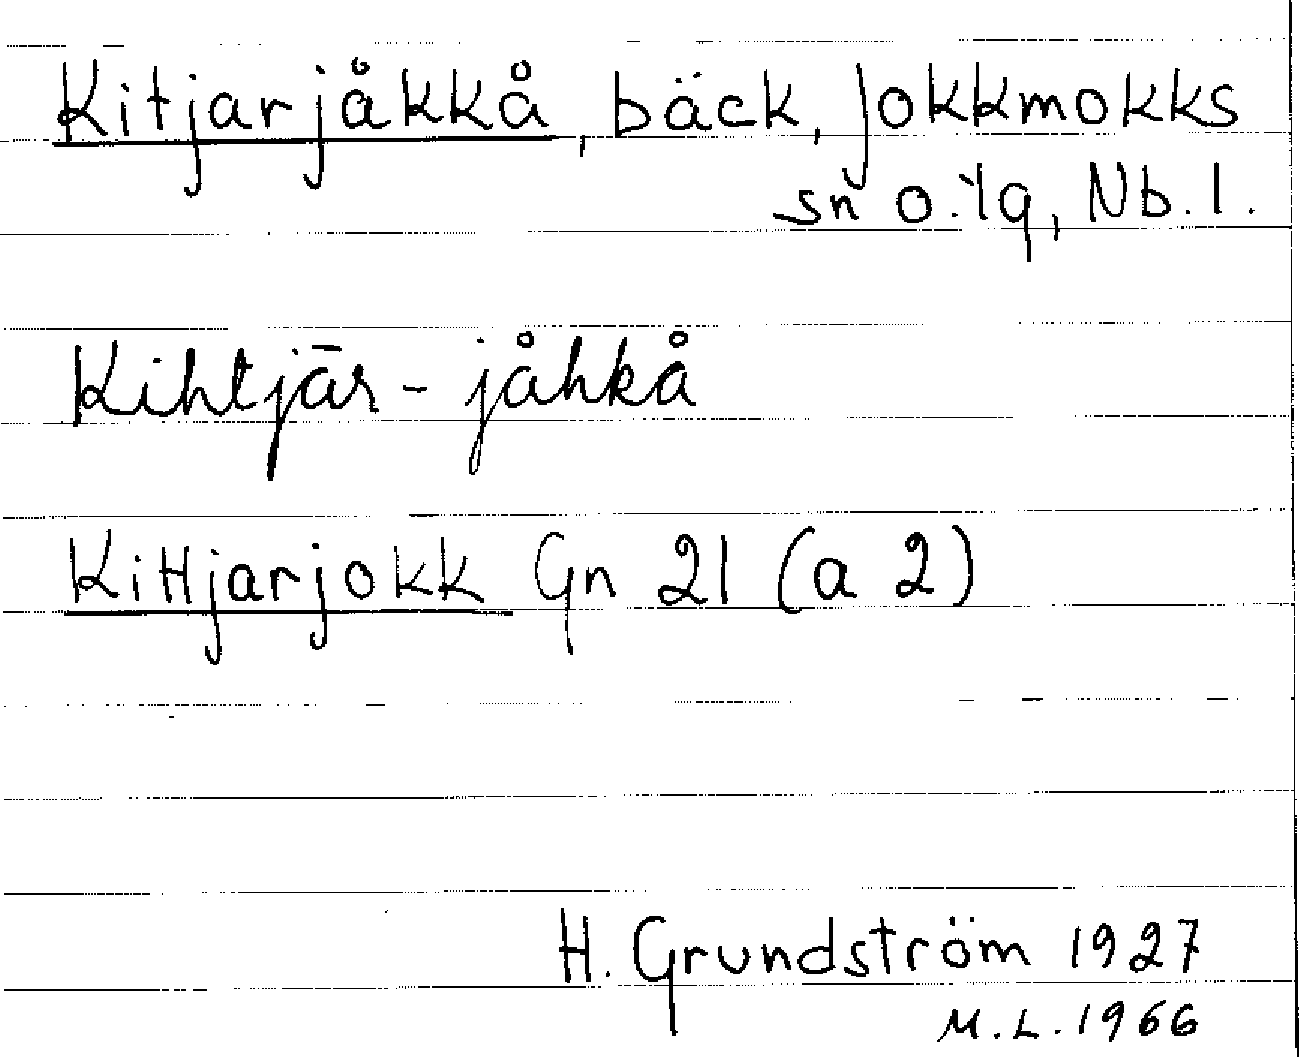 Kitjarjåkkå, bäck, Jokkmokks
sn o. lg, Nb. l.
Kihtjār-jåhkå
Kittjarjokk Gn 21 (a 2)
H. Grundström 1927
M.L. 1966